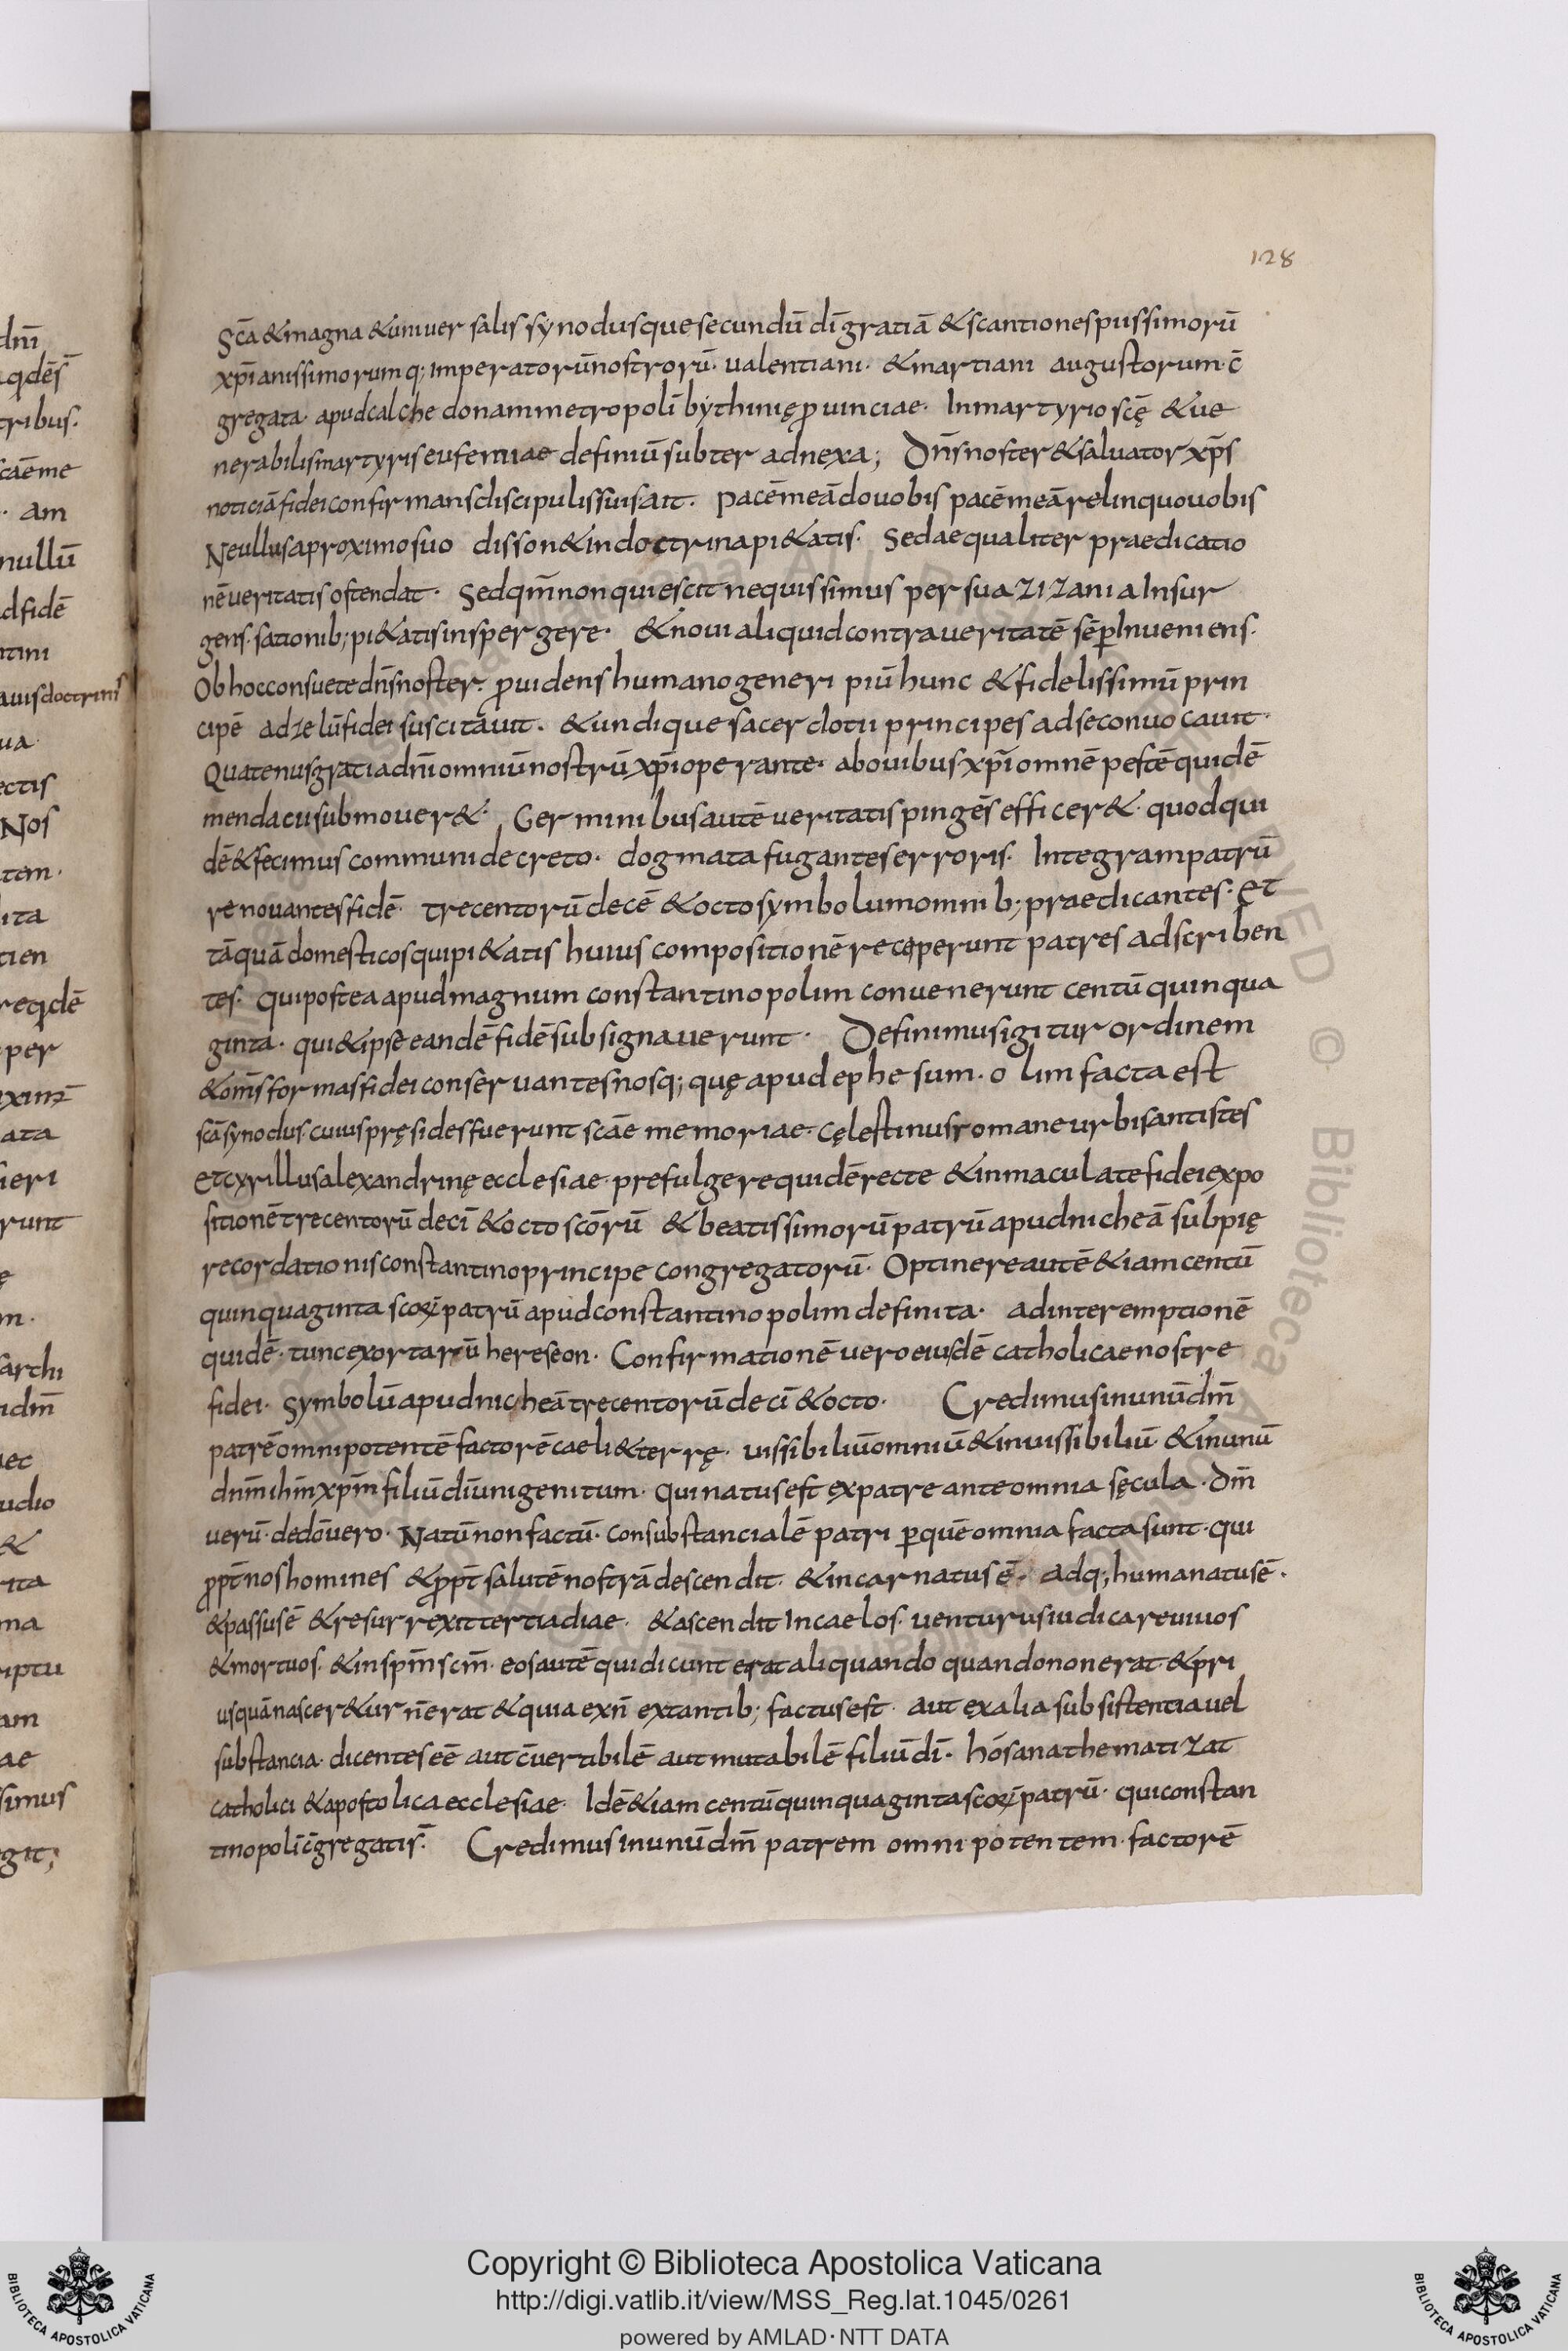 128
Sc̄a & magna & uniuersalis synodus que secundū dī gratiā & scantiones piissimorū
xp̄ianissimorumq; imperatorū nostrorū. ualentiani. & martiani augustorum. c̄
gregata. apud calchedonam metropolī bythinię prouinciae. In martyrio scę̄ & ue
nerabilis martyris eufemiae definiū subter adnexa; Dn̄s noster & saluator xp̄s
noticiā fidei confirmans discipulis suis ait. pacē meā do uobis pacē meā relinquo uobis
Ne ullus a proximo suo disson& in doctrina pi&atis. Sed aequaliter praedicatio
nē ueritatis ostendat. Sed qm̄ non quiescit nequissimus per sua zizania Insur
gens. sationib; pi&atis inspergere. & noui aliquid contra ueritatē sēp Inueniens.
Ob hoc consuete dn̄s noster. puidens humano generi piū hunc & fidelissimū prin
cipē ad zelū fidei suscitauit. & undique sacerdotii principes ad se conuocauit.
Quatenus gratia dn̄i omniū nostrū xp̄i operante. ab ouibus xp̄i omnē pestē quidē
mendacii submouer&. Germinibus autē ueritatis pingēs efficer&. quod qui
dē & fecimus communi decreto. dogmata fugantes erroris. Integram patrū
renouantes fidē. trecentorū decē & octo symbolum omnib; praedicantes. Et
tāquā domesticos qui pi&atis huius compositionē receperunt patres adscriben
tes. qui postea apud magnum constantinopolim conuenerunt centū quinqua
ginta. qui & ipse eandē fidē subsignauerunt. Definimus igitur ordinem
& om̄s formas fidei conseruantes nosq; quę apud ephesum. olim facta est
scā synodus. cuius pręsides fuerunt scāe memoriae. cęlestinus romane urbis antistes
Et cyrillus alexandrinę ecclesiae. prefulgere quidē recte & inmaculate fidei expo
sitionē trecentorū decī & octo scōrū & beatissimorū patrū apud nicheā sub pię
recordationis constantino principe congregatorū. Optinere autē & iam centū
quinquaginta scorꝝ patrū apud constantinopolim definita. ad interemptionē
quidē. tunc exortarū hereseon. Confirmationē uero eiusdē catholicae nostre
fidei. Symbolū apud nicheā trecentorū decī & octo. Credimus in unū dm̄
patrē omnipotentē factorē caeli & terrę. uissibiliū omniū & inuissibiliū. & in unū
dnm̄ ihm̄ xpm̄ filiū dī unigenitum. qui natus est ex patre ante omnia sęcula. dm̄
uerū. de dō uero. Natū non factū. consubstancialē patri p quē omnia facta sunt. qui
ppt̄ nos homines & ppt̄ salutē nostrā descendit. & incarnatus ē. adq; humanatus ē.
& passus ē & resurrexit tertia diae. & ascendit In caelos. uenturus iudicare uiuos
& mortuos. & in spm̄ scm̄. eos autē qui dicunt erat aliquando quando non erat. & pri
usquā nascer&ur n̄ erat & quia ex n̄ extantib; factus est. aut ex alia subsistentia uel
substancia. dicentes eē aut c̄uertibilē aut mutabilē filiū dī. hós anathematizat
catholici & apostolica ecclesiae. Idē & iam centū quinquaginta scorꝝ patrū. qui constan
tinopolī c̄gregatis. Credimus in unū dm̄ patrem omnipotentem. factorē
Copyright © Biblioteca Apostolica Vaticana
http://digi.vatlib.it/view/MSS_Reg.lat.1045/0261
powered by AMLAD · NTT DATA